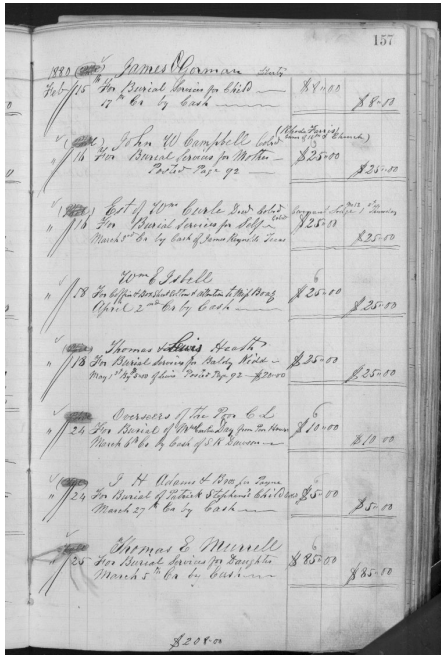 157
1880 James O Gorman
Feb 15th For Burial Services for Child $8-00
17th Cr by Cash $8-00
John W Campbell Cold (Rhoda Farris
" 16 For Burial Services for Mother $25-00
Posted Page 92 $25-00
Est of Wm Curle Decd Cold
" 16 For Burial Services for Self $25-00
March 3rd Cr by Cash of James Reynolds $25-00
Wm E Isbell
" 18 For Coffin & attention to Miss $25-00
April 2nd Cr by Cash $25-00
Thomas & Lewis Heath
" 18 For Burial Services for $25-00
May 1st By 5-00 of Lewis Posted Page 92 $20-00 $25-00
Overseers of the Poor C L
" 24 For Burial of Day from Poor House $10-00
March 6th Cr by Cash of S R Dawson $10-00
J H Adams & Bro for Payne
" 24 For Burial of Patrick Stephens's Child $5-00
March 27th Cr by Cash $5-00
Thomas E Murrell
" 25 For Burial Services for Daughter $85-00
March 5th Cr by Cash $85-00
$208-00